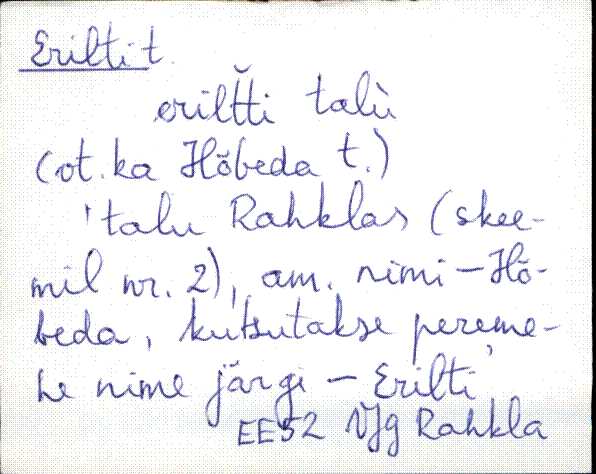 Erilti t.
eriltti talù
(ot. ka Hõbeda t.)
'talu Rahklas (skee-
mil nr. 2), am. nimi – Hõ-
beda, kutsutakse pereme-
he nime järgi – Erilti'
EE52 VJg Rahkla